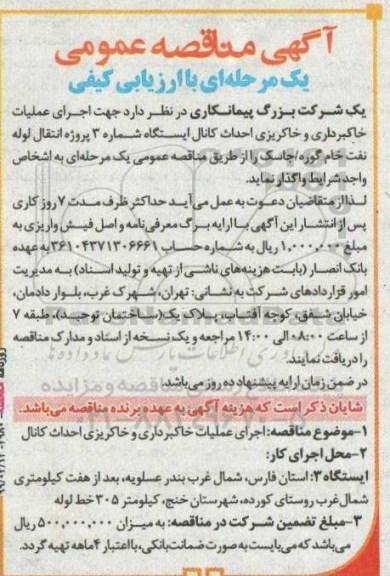 آگهی مناقصه عمومی
یک مرحله‌ای با ارزیابی کیفی
یک شرکت بزرگ پیمانکاری در نظر دارد جهت اجرای عملیات
خاکبرداری و خاکریزی احداث کانال ایستگاه شماره ۳ پروژه انتقال لوله
نفت خام گوره/جاسک را از طریق مناقصه عمومی یک مرحله‌ای به اشخاص
واجد شرایط واگذار نماید.
لذا از متقاضیان دعوت به عمل می‌آید حداکثر ظرف مدت ۷ روز کاری
پس از انتشار این آگهی با ارایه برگ معرفی‌نامه و اصل فیش واریزی به
مبلغ ۱،۰۰۰،۰۰۰ ریال به شماره حساب ۳۶۱۰۴۳۷۱۳۰۶۶۶۱ به عهده
بانک انصار (بابت هزینه‌های ناشی از تهیه و تولید اسناد) به مدیریت
امور قراردادهای شرکت به نشانی: تهران، شهرک غرب، بلوار دادمان،
خیابان شفق، کوچه آفتاب، پلاک یک (ساختمان توحید)، طبقه ۷
از ساعت ۰۸:۰۰ الی ۱۴:۰۰ مراجعه و یک نسخه از اسناد و مدارک مناقصه
را دریافت نمایند.
در ضمن زمان ارایه پیشنهاد ده روز می‌باشد.
شایان ذکر است که هزینه آگهی به عهده برنده مناقصه می‌باشد.
۱-موضوع مناقصه: اجرای عملیات خاکبرداری و خاکریزی احداث کانال
۲-محل اجرای کار:
ایستگاه ۳: استان فارس، شمال غرب بندر عسلویه، بعد از هفت کیلومتری
شمال‌غرب روستای کورده، شهرستان خنج، کیلومتر ۳۰۵ خط لوله
۳-مبلغ تضمین شرکت در مناقصه: به میزان ۵۰۰،۰۰۰،۰۰۰ ریال
می‌باشد که می‌بایست به صورت ضمانت بانکی، با اعتبار ۴ ماهه تهیه گردد.